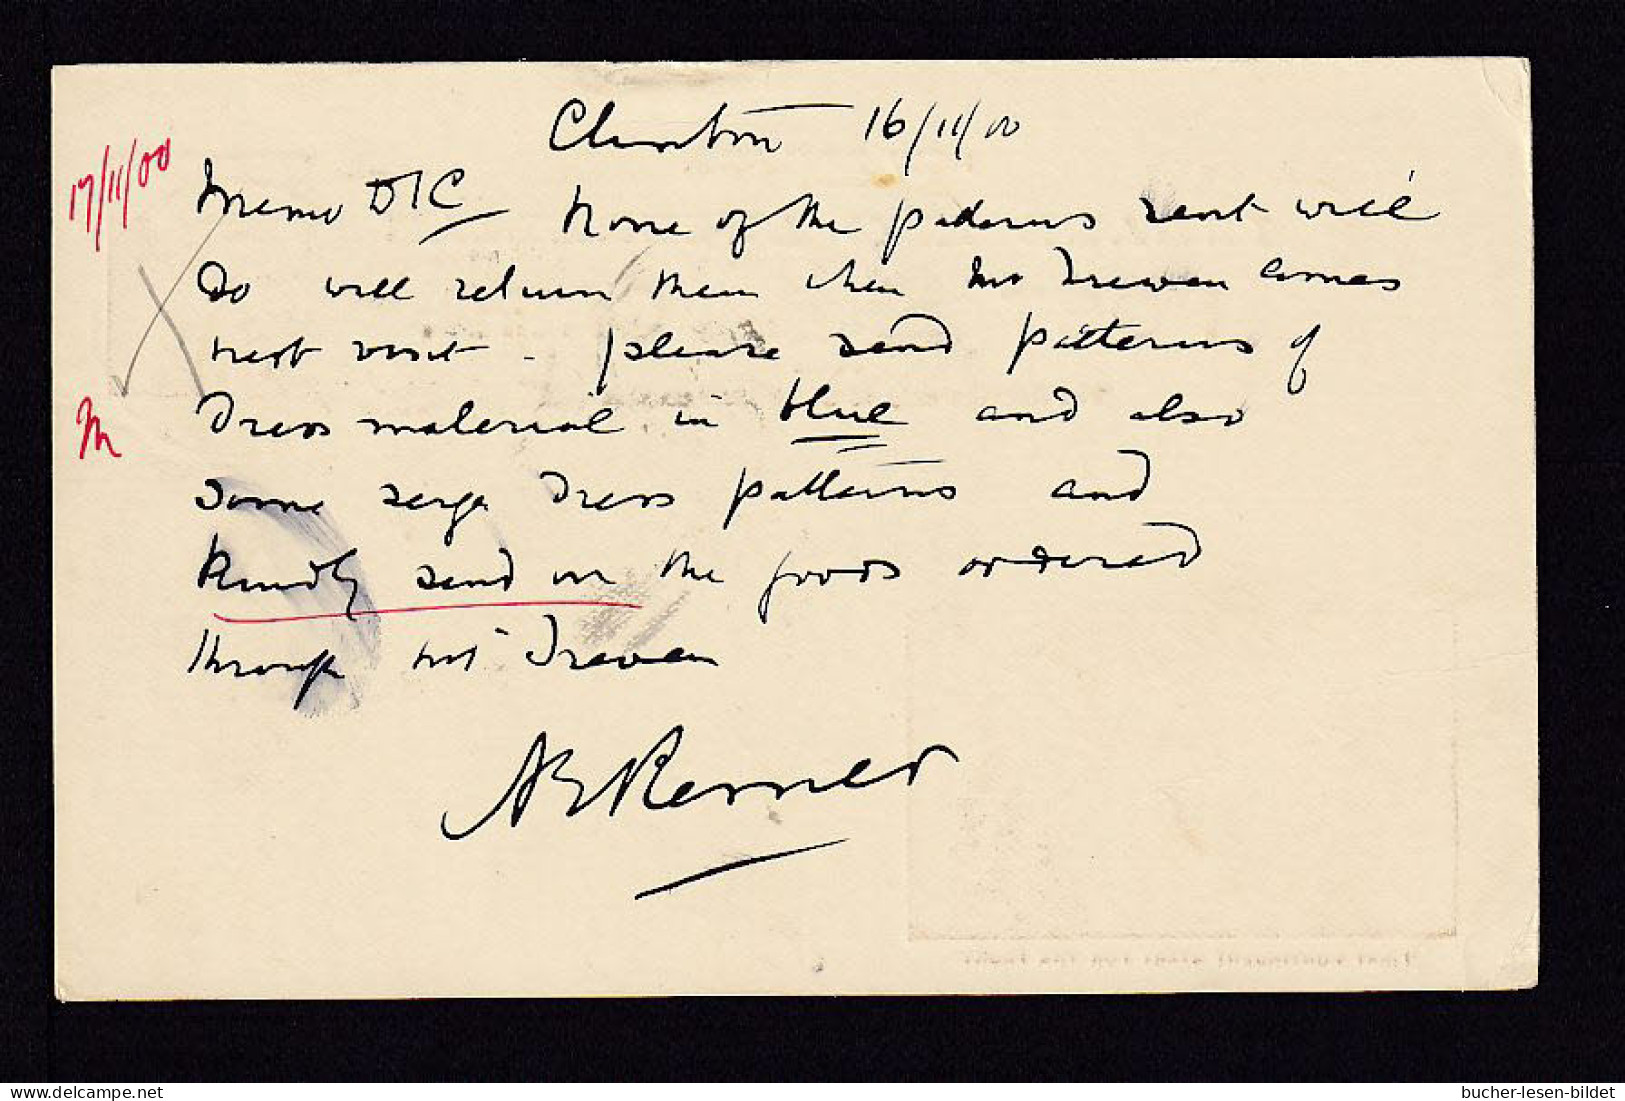 Clinton 16/11/00
17/11/00
Memo DIC None of the patterns sent will
do will return them when Mr Trewen comes
next visit - please send patterns of
Dress material in blue and also
some serge Dress patterns and
Kindly send on the goods ordered
through Mr Trewen
M
bucher-lesen-bildet